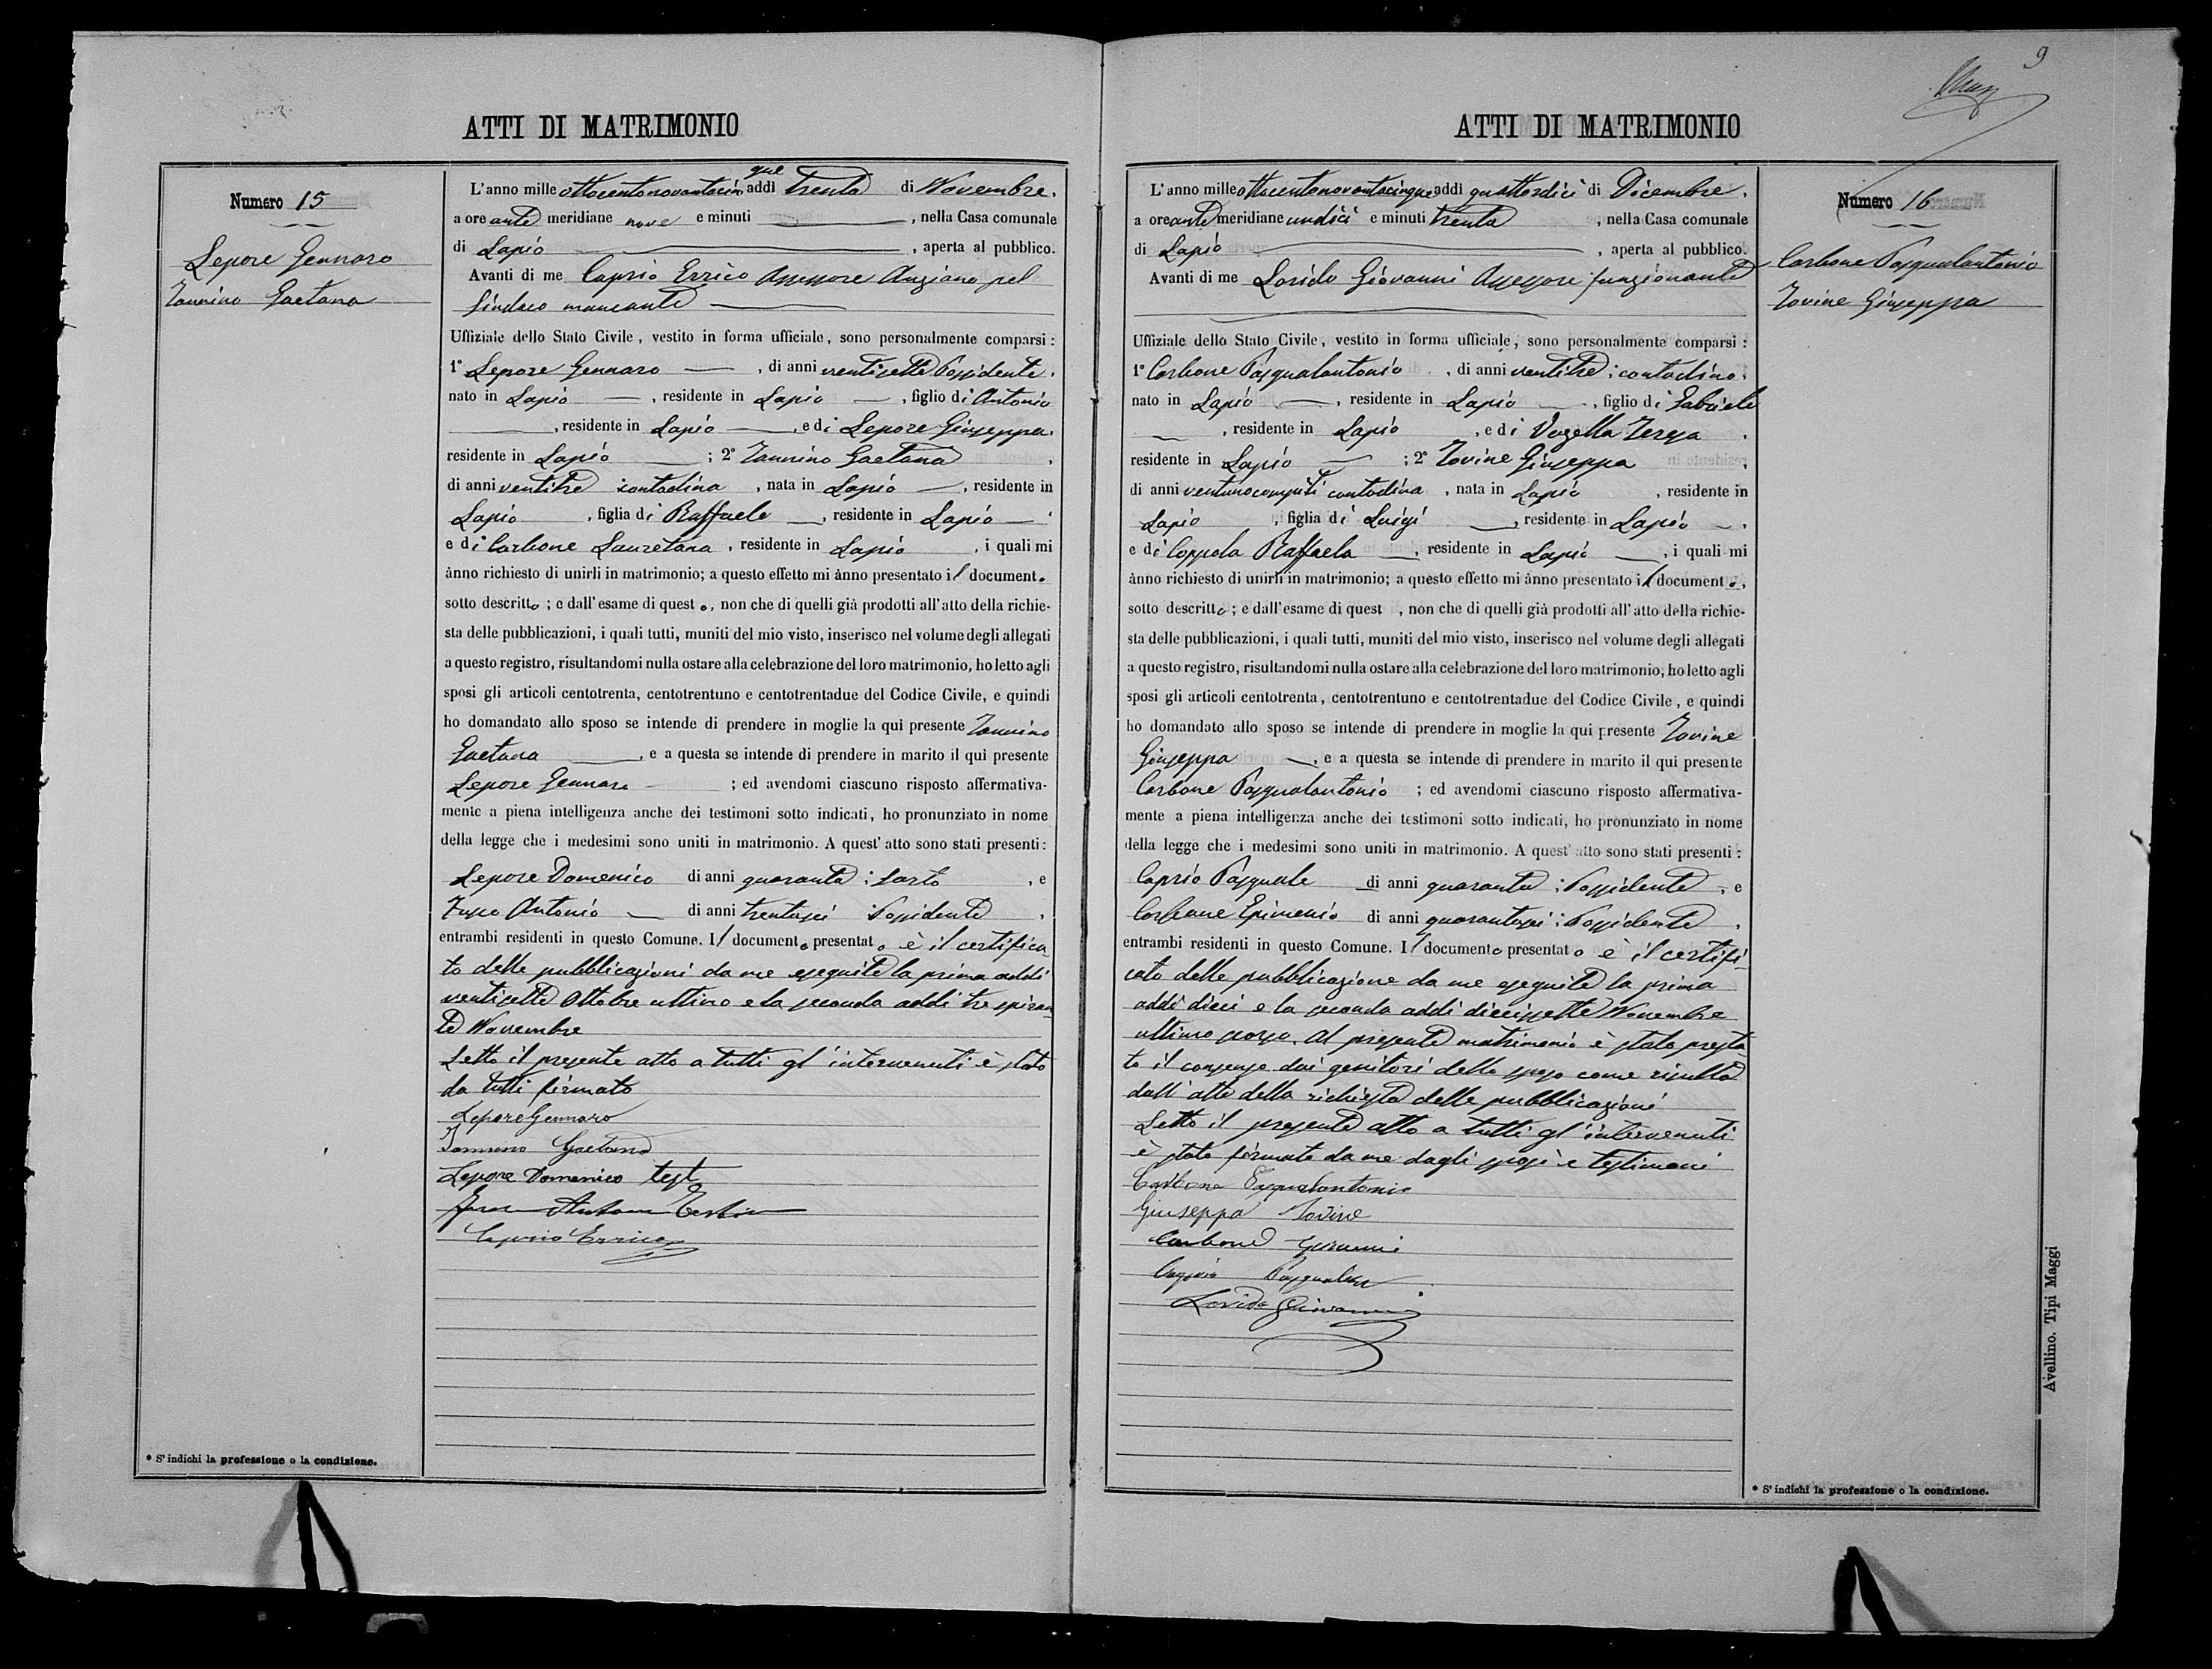 ATTI DI MATRIMONIO
Numero 15
Lepore Gennaro
Iannino Gaetana
L'anno mille ottocentonovantacinque addì trenta di Novembre,
a ore ante meridiane nove e minuti , nella Casa comunale
di Lapio , aperta al pubblico.
Avanti di me Caprio Errico Assessore Anziano pel
Sindaco mancante
Uffiziale dello Stato Civile, vestito in forma ufficiale, sono personalmente comparsi:
1° Lepore Gennaro , di anni ventisette Possidente,
nato in Lapio , residente in Lapio , figlio di Antonio
, residente in Lapio , e di Lepore Giuseppa,
residente in Lapio ; 2° Iannino Gaetana ,
di anni ventitre contadina , nata in Lapio , residente in
Lapio , figlia di Raffaele , residente in Lapio ,
e di Carbone Lauretana , residente in Lapio , i quali mi
ànno richiesto di unirli in matrimonio; a questo effetto mi ànno presentato il documento
sotto descritto; e dall'esame di questo, non che di quelli già prodotti all'atto della richie-
sta delle pubblicazioni, i quali tutti, muniti del mio visto, inserisco nel volume degli allegati
a questo registro, risultandomi nulla ostare alla celebrazione del loro matrimonio, ho letto agli
sposi gli articoli centotrenta, centotrentuno e centotrentadue del Codice Civile, e quindi
ho domandato allo sposo se intende di prendere in moglie la qui presente Iannino
Gaetana , e a questa se intende di prendere in marito il qui presente
Lepore Gennaro ; ed avendomi ciascuno risposto affermativa-
mente a piena intelligenza anche dei testimoni sotto indicati, ho pronunziato in nome
della legge che i medesimi sono uniti in matrimonio. A quest'atto sono stati presenti:
Lepore Domenico di anni quaranta : sarto , e
Antonio di anni trentasei Possidente ,
entrambi residenti in questo Comune. Il documento presentato è il certifica
to delle pubblicazioni da me eseguite la prima addì
ventisette Ottobre ultimo e la seconda addì tre spiran
te Novembre
Letto il presente atto a tutti gl'intervenuti è stato
da tutti firmato
Lepore Gennaro
Iannino Gaetana
Lepore Domenico test
Antonio
Caprio Errico
* S'indichi la professione o la condizione.
9
ATTI DI MATRIMONIO
Numero 16
Carbone Pasqualantonio
Iovine Giuseppa
L'anno mille ottocentonovantacinque addì quattordici di Dicembre,
a ore ante meridiane undici e minuti trenta , nella Casa comunale
di Lapio , aperta al pubblico.
Avanti di me Lorido Giovanni Assessore funzionante
Uffiziale dello Stato Civile, vestito in forma ufficiale, sono personalmente comparsi:
1° Carbone Pasqualantonio , di anni ventitre : contadino,
nato in Lapio , residente in Lapio , figlio di Gabriele
, residente in Lapio , e di Vozella Teresa ,
residente in Lapio ; 2° Iovine Giuseppa ,
di anni ventuno compiuti contadina , nata in Lapio , residente in
Lapio , figlia di Luigi , residente in Lapio ,
e di Coppola Raffaela , residente in Lapio , i quali mi
ànno richiesto di unirli in matrimonio; a questo effetto mi ànno presentato il documento,
sotto descritto; e dall'esame di quest , non che di quelli già prodotti all'atto della richie-
sta delle pubblicazioni, i quali tutti, muniti del mio visto, inserisco nel volume degli allegati
a questo registro, risultandomi nulla ostare alla celebrazione del loro matrimonio, ho letto agli
sposi gli articoli centotrenta, centotrentuno e centotrentadue del Codice Civile, e quindi
ho domandato allo sposo se intende di prendere in moglie la qui presente Iovine
Giuseppa , e a questa se intende di prendere in marito il qui presente
Carbone Pasqualantonio ; ed avendomi ciascuno risposto affermativa-
mente a piena intelligenza anche dei testimoni sotto indicati, ho pronunziato in nome
della legge che i medesimi sono uniti in matrimonio. A quest'atto sono stati presenti:
Caprio Pasquale di anni quaranta : Possidente , e
Carbone Epimenio di anni quarantasei : Possidente ,
entrambi residenti in questo Comune. Il documento presentato è il certifi
cato delle pubblicazione da me eseguite la prima
addì dieci e la seconda addì diecissette Novembre
ultimo scorso. Al presente matrimonio è stato presta
to il consenso dai genitori dello sposo come risulta
dall'atto della richiesta delle pubblicazioni
Letto il presente atto a tutti gl'intervenuti
è stato firmato da me dagli sposi e testimoni
Carbone Pasqualantonio
Giuseppa Iovine
Carbone
Caprio Pasquale
Lorido Giovanni
* S'indichi la professione o la condizione.
Avellino. Tipi Maggi